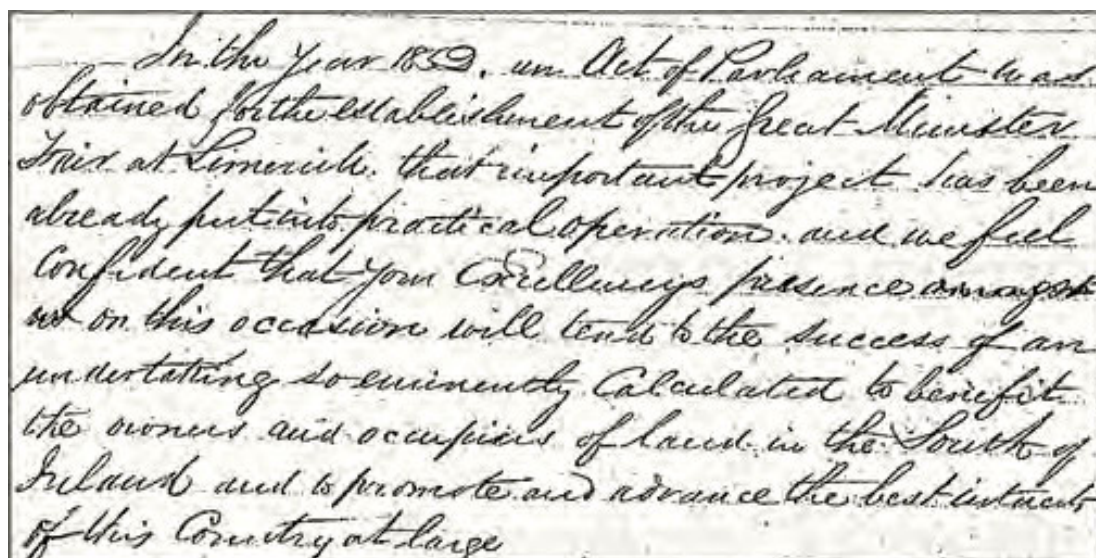 In the Year 1852. an Act of Parliament was
obtained for the establishment of the Great Munster
Fair at Limerick. that important project has been
already put into practical operation. and we feel
Confident that Your Excellency's presence amongst
us on this occasion will tend to the success of an
undertaking so eminently Calculated to benefit
the owners and occupiers of land in the South of
Ireland and to promote and advance the best interests
of this Country at large